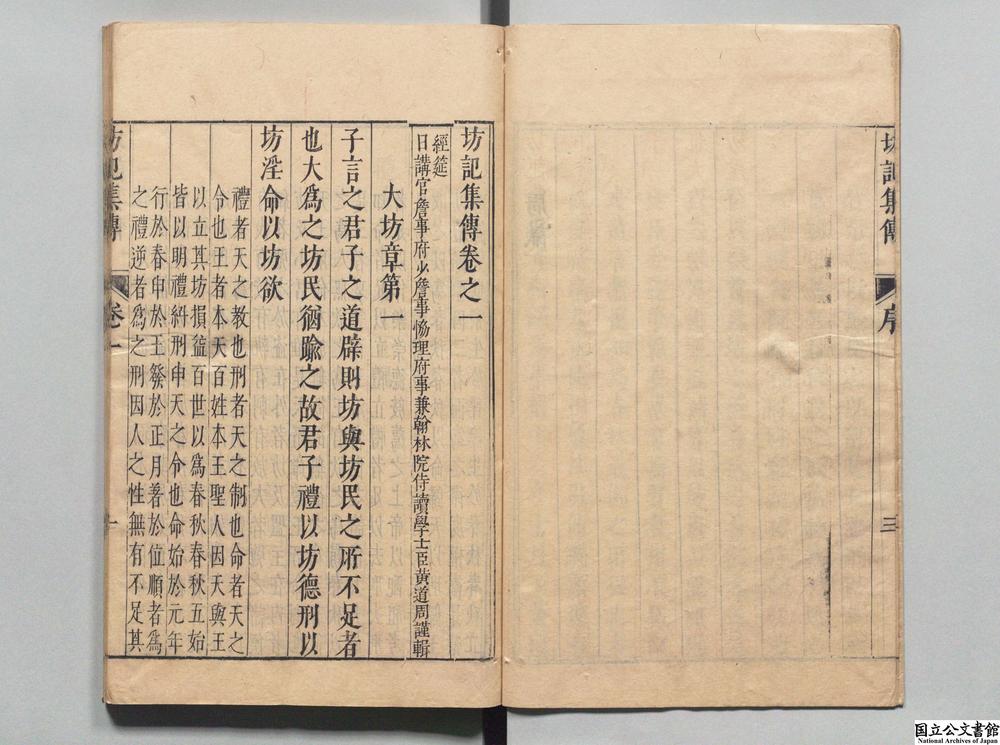 坊記集傳
序
三
坊記集傳卷之一
經筵
日講官詹事府少詹事恊理府事兼翰林院侍讀學士臣黃道周謹輯
大坊章第一
子言之君子之道辟則坊與坊民之所不足者
也大爲之坊民猶踰之故君子禮以坊德刑以
坊淫命以坊欲
禮者天之教也刑者天之制也命者天之
令也王者本天百姓本王聖人因天與王
以立其坊損益百世以爲春秋春秋五始
皆以明禮糾刑申天之令也命始於元年
行於春申於王發於正月著於位順者爲
之禮逆者爲之刑因人之性無有不足其
坊記集傳
卷一
一
国立公文書館
National Archives of Japan